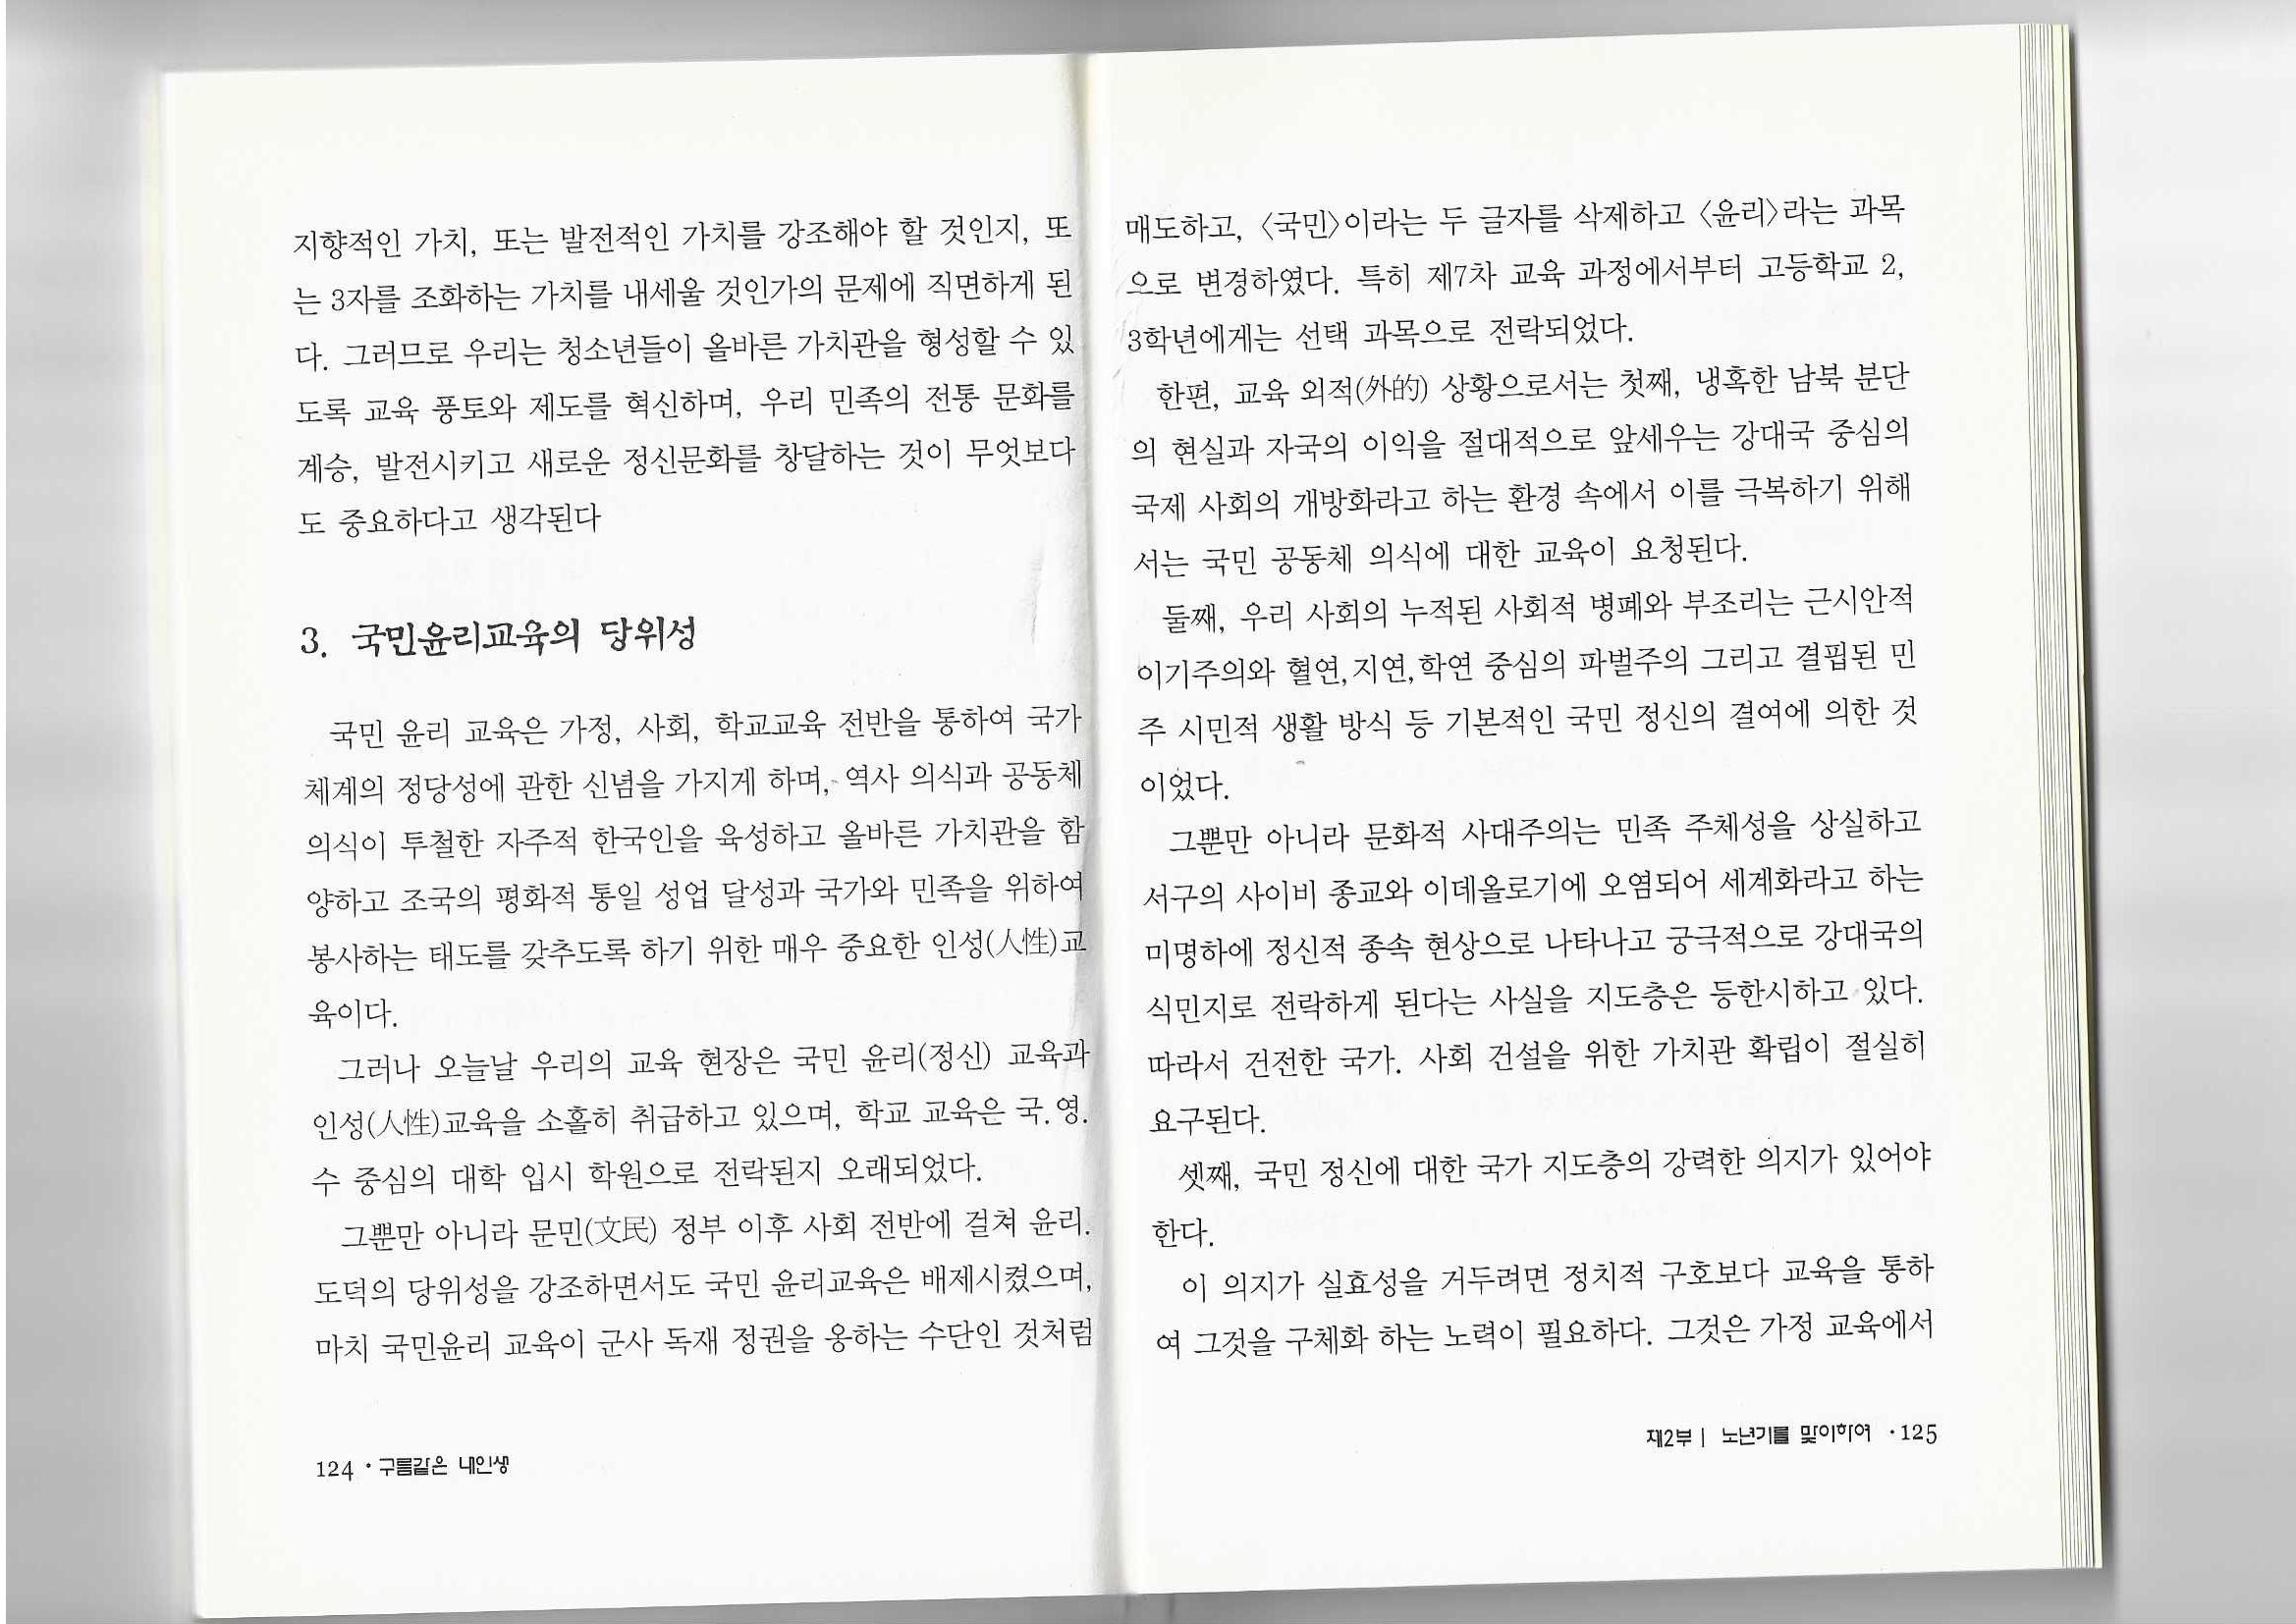 지향적인 가치, 또는 발전적인 가치를 강조해야 할 것인지, 또
는 3자를 조화하는 가치를 내세울 것인가의 문제에 직면하게 된
다. 그러므로 우리는 청소년들이 올바른 가치관을 형성할 수 있
도록 교육 풍토와 제도를 혁신하며, 우리 민족의 전통 문화를
계승, 발전시키고 새로운 정신문화를 창달하는 것이 무엇보다
도 중요하다고 생각된다
3. 국민윤리교육의 당위성
국민 윤리 교육은 가정, 사회, 학교교육 전반을 통하여 국가
체계의 정당성에 관한 신념을 가지게 하며, 역사 의식과 공동체
의식이 투철한 자주적 한국인을 육성하고 올바른 가치관을 함
양하고 조국의 평화적 통일 성업 달성과 국가와 민족을 위하여
봉사하는 태도를 갖추도록 하기 위한 매우 중요한 인성(人性)교
육이다.
그러나 오늘날 우리의 교육 현장은 국민 윤리(정신) 교육과
인성(人性)교육을 소홀히 취급하고 있으며, 학교 교육은 국.영.
수 중심의 대학 입시 학원으로 전락된지 오래되었다.
그뿐만 아니라 문민(文民) 정부 이후 사회 전반에 걸쳐 윤리.
도덕의 당위성을 강조하면서도 국민 윤리교육은 배제시켰으며,
마치 국민윤리 교육이 군사 독재 정권을 옹하는 수단인 것처럼
124 · 구름같은 내인생
매도하고, 〈국민〉이라는 두 글자를 삭제하고 〈윤리〉라는 과목
으로 변경하였다. 특히 제7차 교육 과정에서부터 고등학교 2,
3학년에게는 선택 과목으로 전락되었다.
한편, 교육 외적(外的) 상황으로서는 첫째, 냉혹한 남북 분단
의 현실과 자국의 이익을 절대적으로 앞세우는 강대국 중심의
국제 사회의 개방화라고 하는 환경 속에서 이를 극복하기 위해
서는 국민 공동체 의식에 대한 교육이 요청된다.
둘째, 우리 사회의 누적된 사회적 병폐와 부조리는 근시안적
이기주의와 혈연,지연,학연 중심의 파벌주의 그리고 결핍된 민
주 시민적 생활 방식 등 기본적인 국민 정신의 결여에 의한 것
이었다.
그뿐만 아니라 문화적 사대주의는 민족 주체성을 상실하고
서구의 사이비 종교와 이데올로기에 오염되어 세계화라고 하는
미명하에 정신적 종속 현상으로 나타나고 궁극적으로 강대국의
식민지로 전락하게 된다는 사실을 지도층은 등한시하고 있다.
따라서 건전한 국가. 사회 건설을 위한 가치관 확립이 절실히
요구된다.
셋째, 국민 정신에 대한 국가 지도층의 강력한 의지가 있어야
한다.
이 의지가 실효성을 거두려면 정치적 구호보다 교육을 통하
여 그것을 구체화 하는 노력이 필요하다. 그것은 가정 교육에서
제2부 | 노년기를 맞이하여 · 125